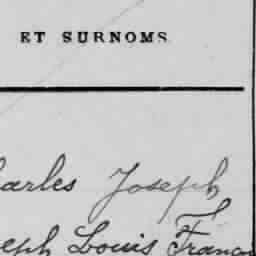 ET SURNOMS.
harles Joseph
eph Louis Franço